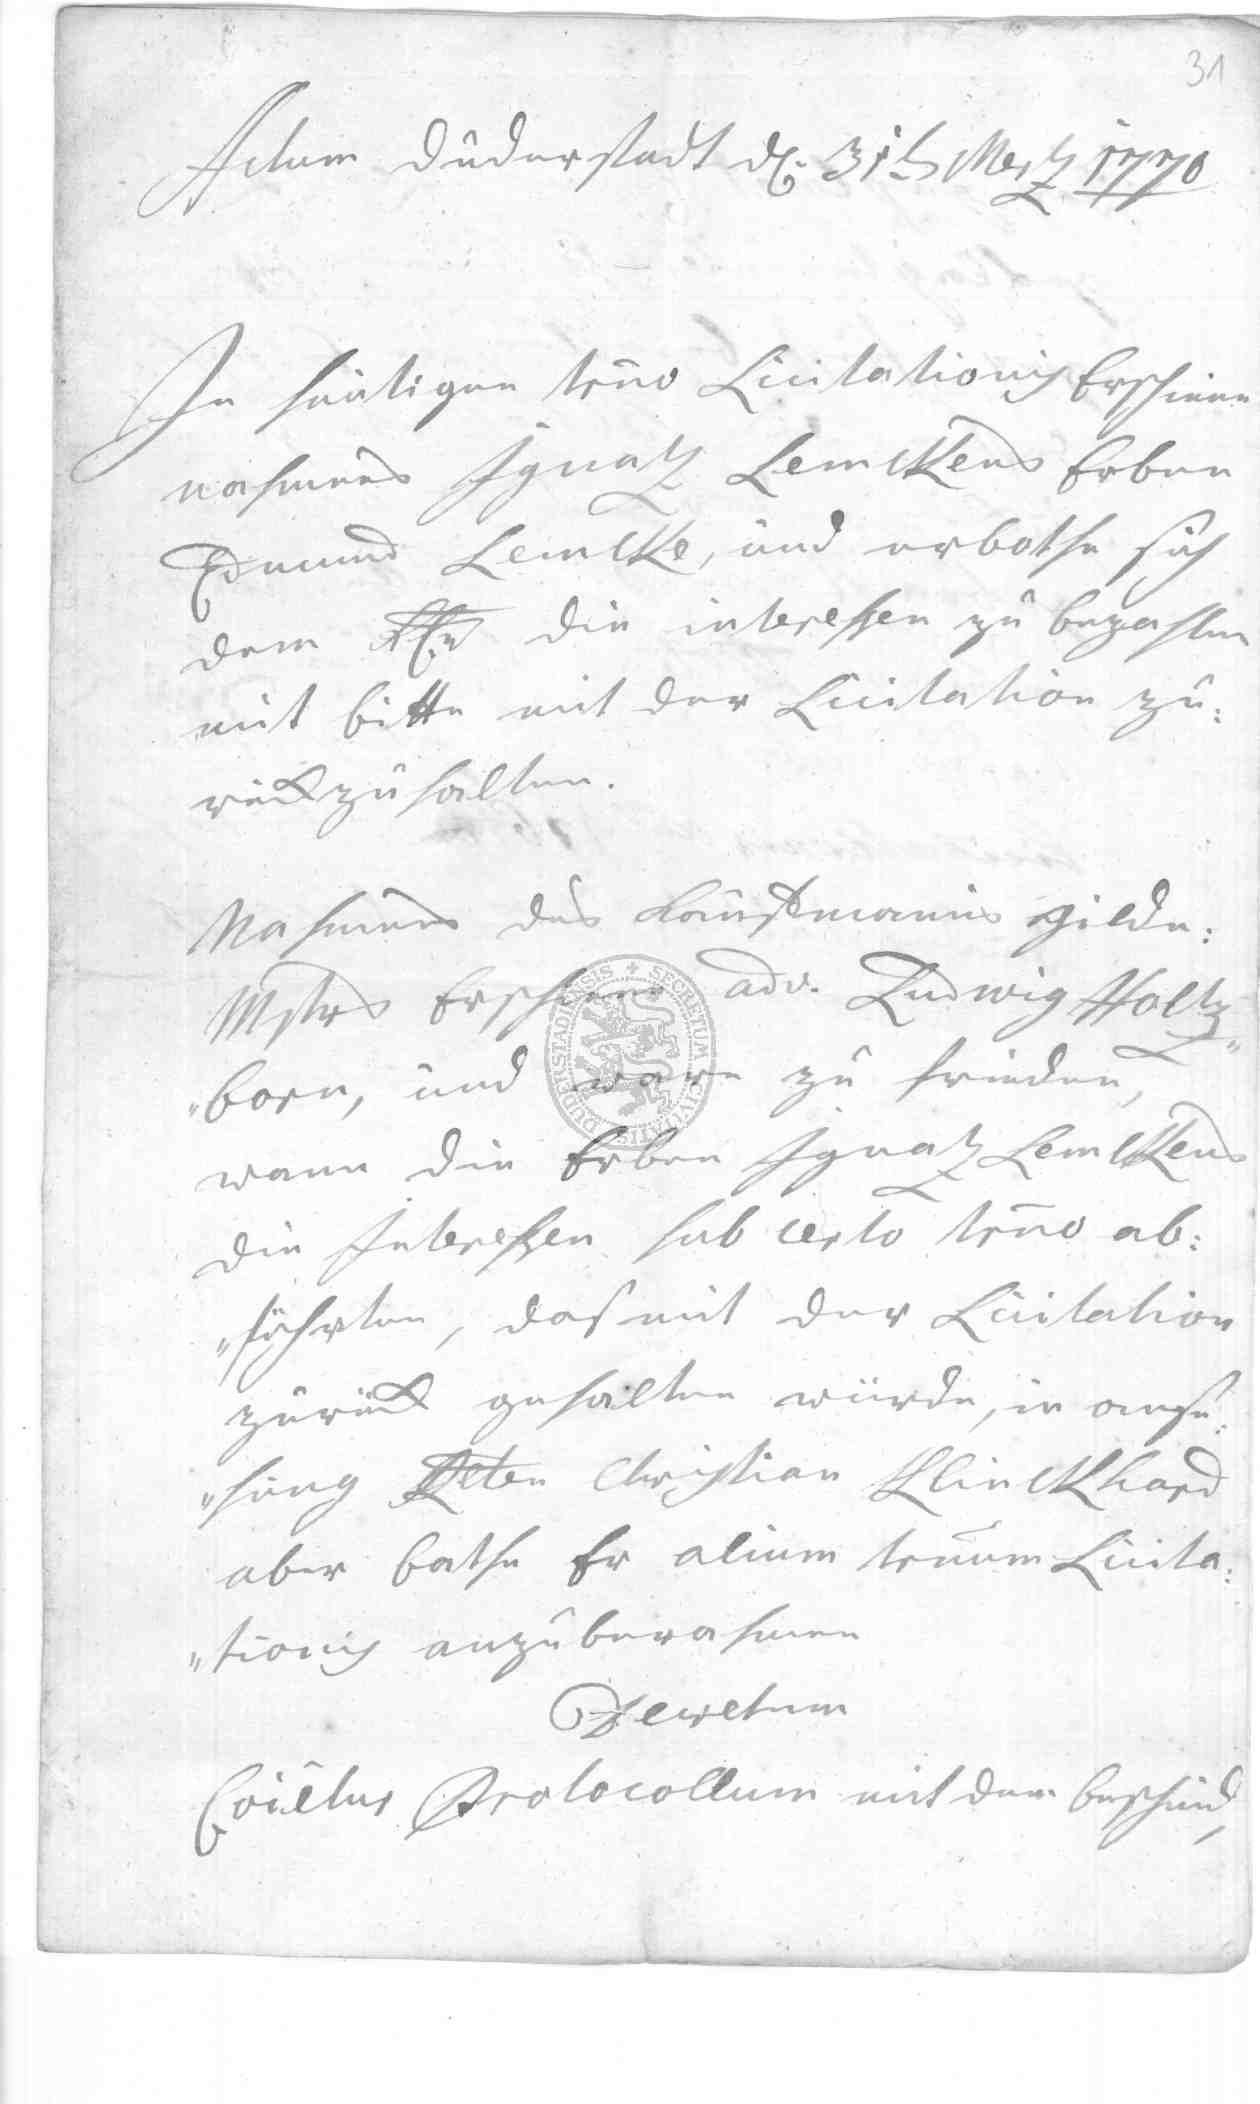 31
Actum Duderstadt d. 31t Mertz 1770
In heutigen trno Licitationis Erschiene
nahmens Ignatz Lemckens Erben
Edmund Lemcke, und erbothe sich
dem die interessen zu bezahlen
mit bitte mit der Licitation zu:
rückzuhalten.
Nahmens des Kauffmanns gilde:
Mstrs Erschiene adv. Ludwig Holtz„
„born, und ware zu frieden,
wann die Erben Ignatz Lemckens
die Interessen sub certo trno ab:
„führten, daß mit der Licitation
zurück gehalten würde, in anse:
„hung Christian Klinckhard
aber bathe Er alium trnum Licita:
„tionis anzuberahmen
Decretum
Protocollum mit dem bescheid,
SECRETUM CIVITATIS DUDERSTADIENSIS